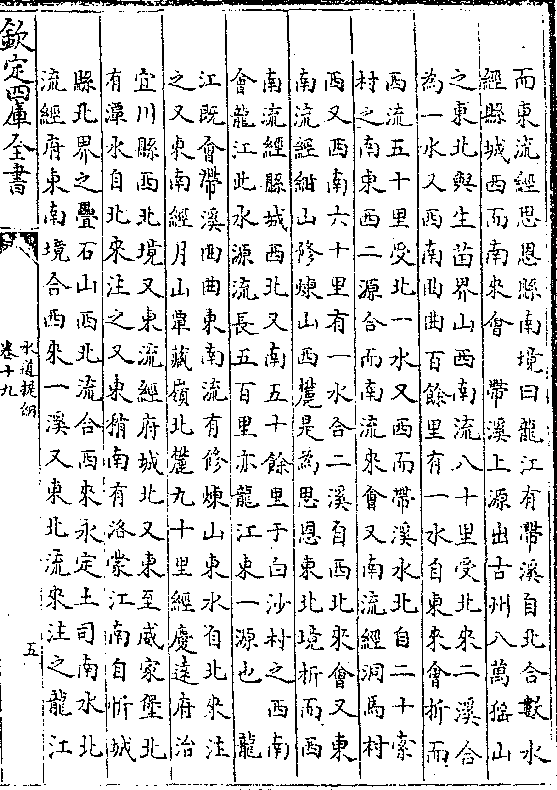 而東流經思恩縣南境曰龍江有帶溪自北合數水
經縣城西而南來會　帶溪上源出古州八萬猺山
之東北與生苗界山西南流八十里受北來二溪合
為一水又西南曲曲百餘里有一水自東來會折而
西流五十里受北一水又西而帶溪水北自二十索
村之南東西二源合而南流來會又南流經洞馬村
西又西南六十里有一水合二溪自西北來會又東
南流經紺山修煉山西麓是為思恩東北境折而西
南流經縣城西北又南五十餘里于白沙村之西南
會龍江此水源流長五百里亦龍江東一源也　龍
江既會帶溪西曲東南流有修煉山東水自北來注
之又東南經月山覃藏嶺北麓九十里經慶遠府治
宜川縣西北境又東流經府城北又東至威家堡北
有潭水自北來注之又東稍南有洛蒙江南自忻城
縣北界之疊石山西北流合西來永定土司南水北
流經府東南境合西來一溪又東北流來注之龍江
欽定四庫全書
水道提綱
卷十九
五